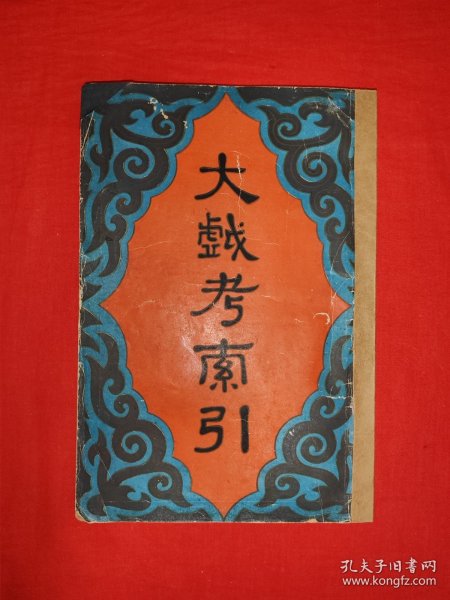 大戯考索引
孔夫子旧书网
www.kongfz.com